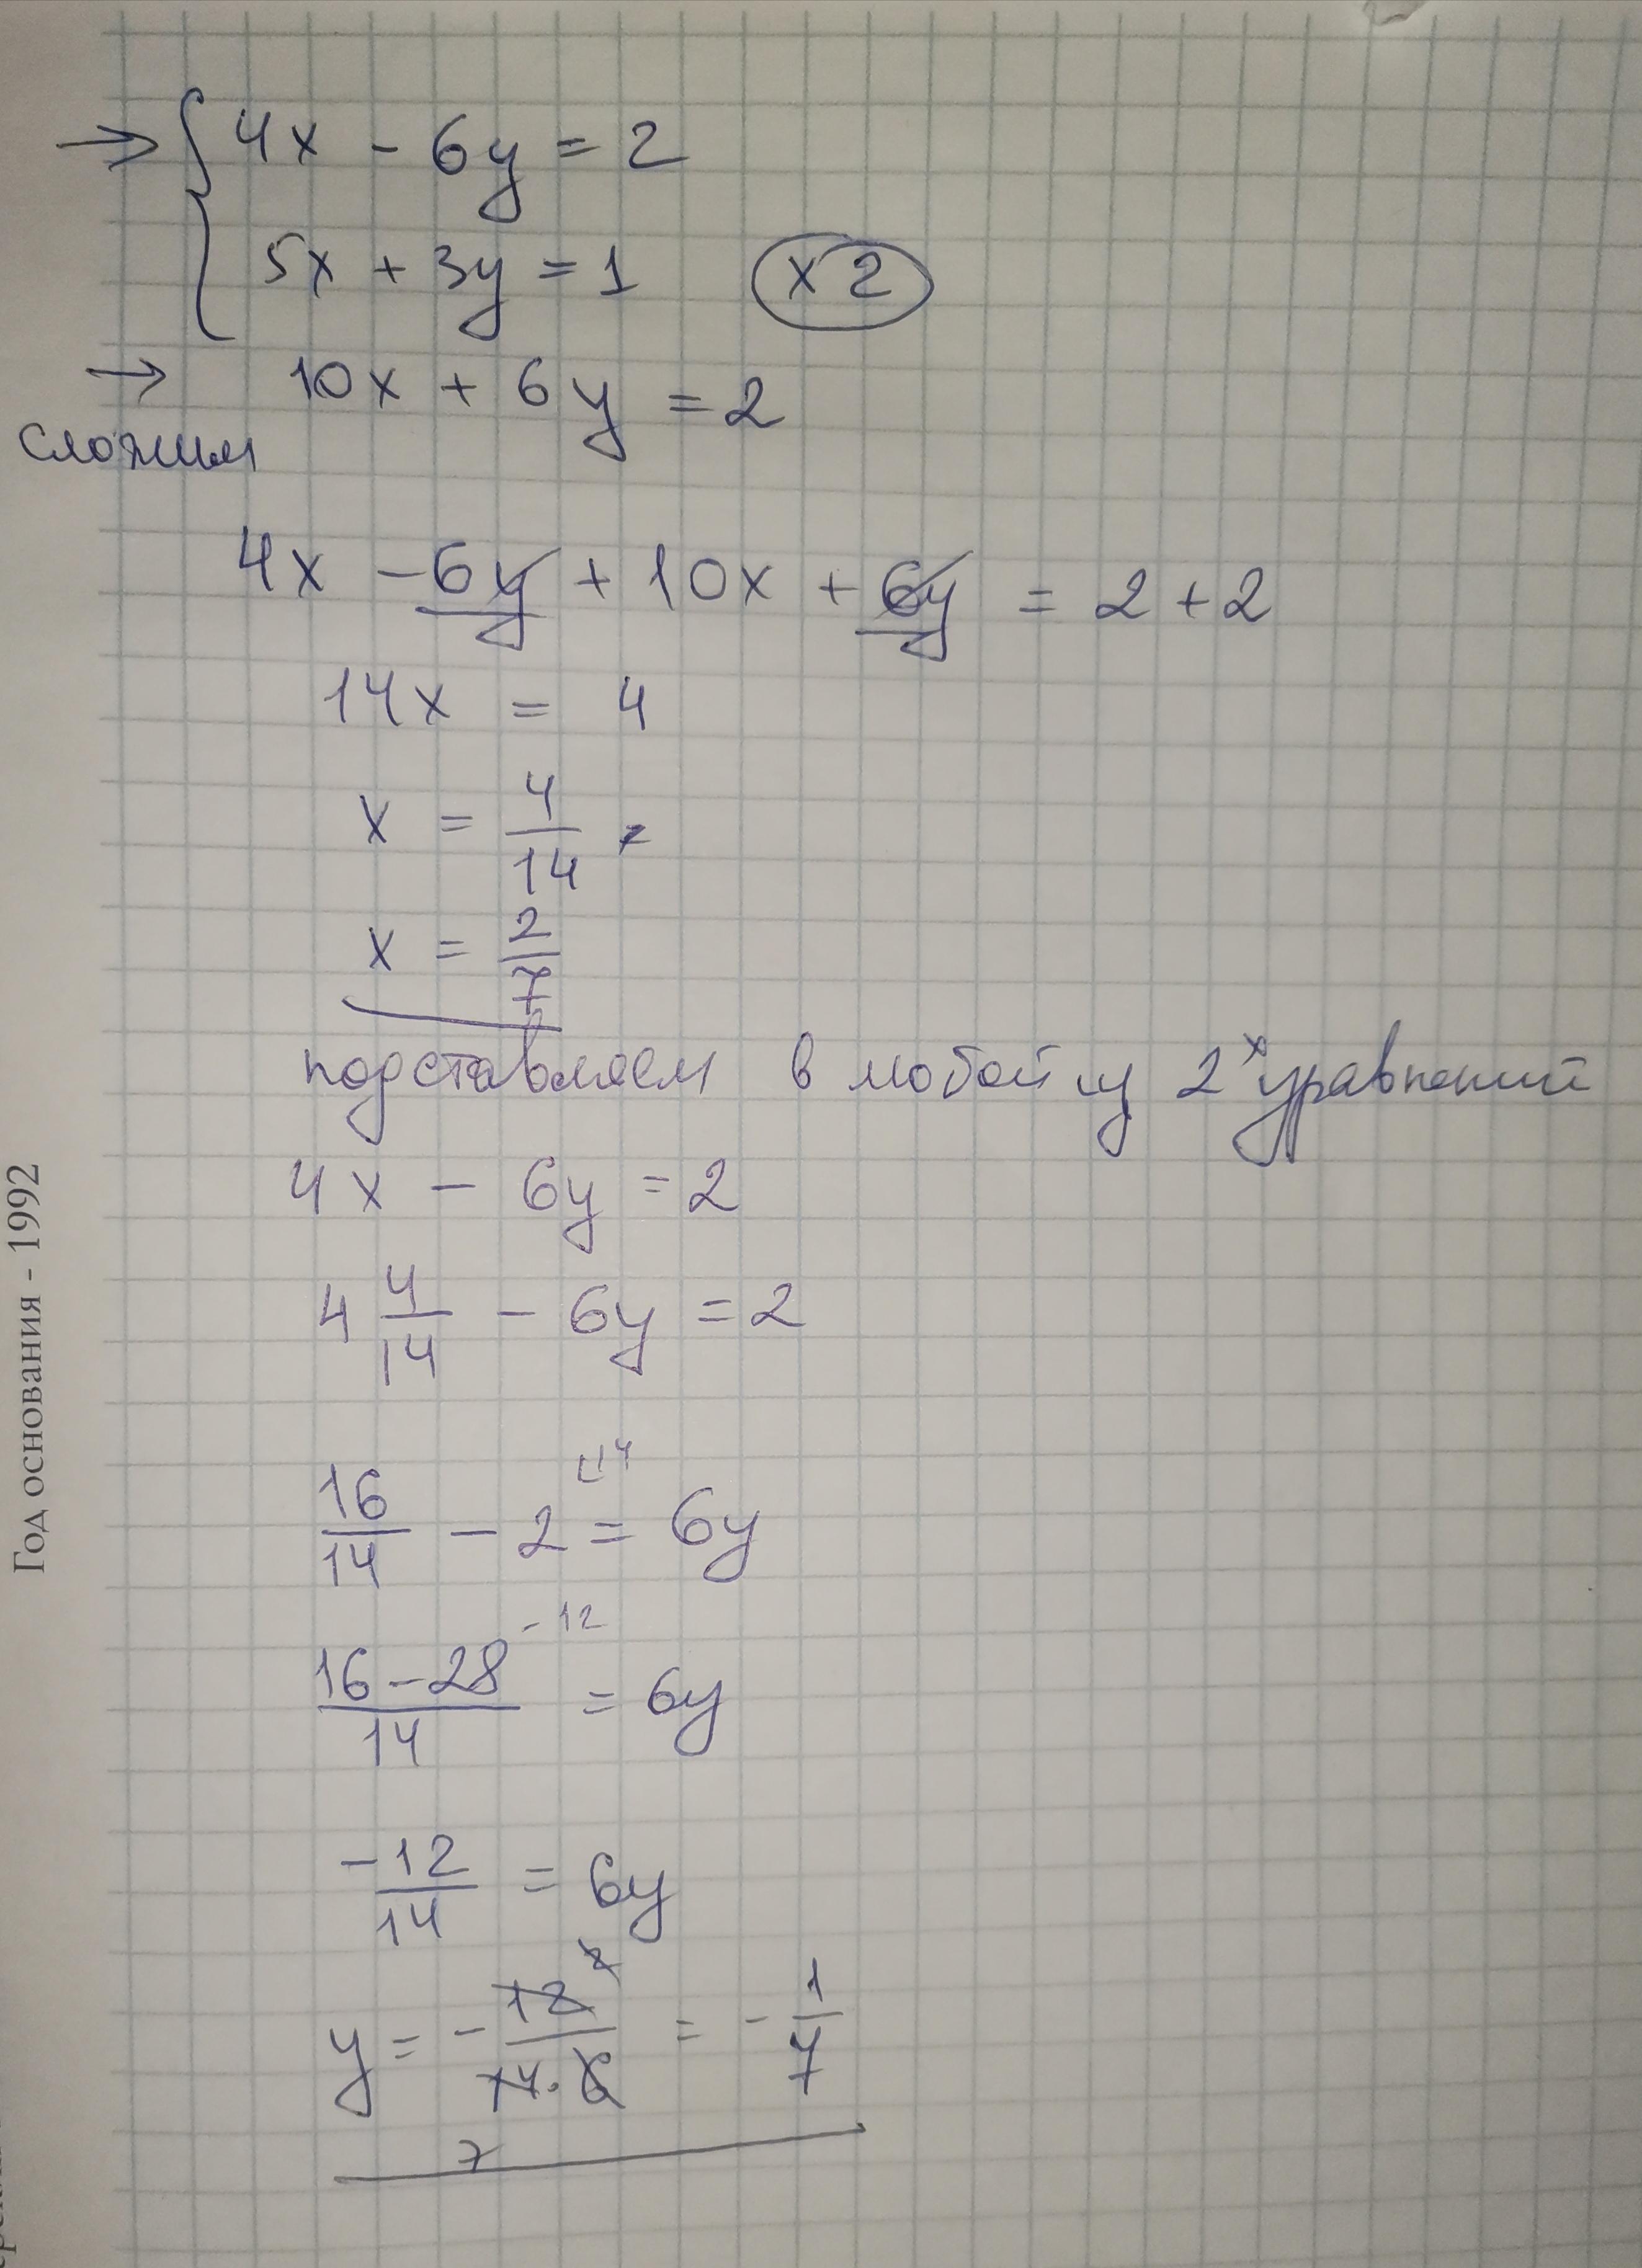 → { 4x - 6y = 2
5x + 3y = 1 (x 2)
→ 10x + 6y = 2
Сложим
4x - 6y + 10x + 6y = 2 + 2
14x = 4
x = 4/14
x = 2/7
подставляем в любой из 2х уравнений
4x - 6y = 2
4 4/14 - 6y = 2
16/14 - 2 = 6y
-12
16-28/14 = 6y
-12/14 = 6y
y = - 12/14·6 = - 1/7
7
Год основания - 1992